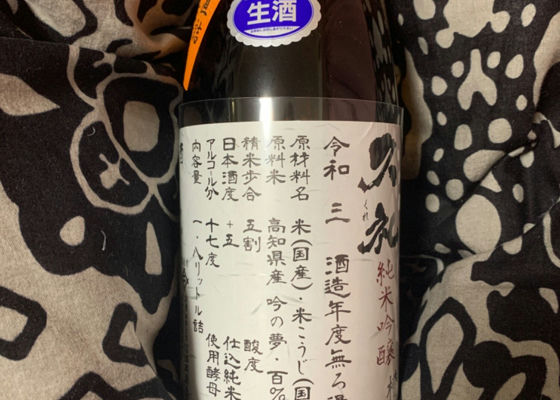 生酒
久礼
くれ
純米吟醸
令和三酒造年度無ろ過
原材料名 米(国産)・米こうじ(国
原料米 高知県産 吟の夢・百%
精米歩合 五割 酸度
日本酒度 +五 仕込純米
アルコール分 十七度 使用酵母
内容量 一・八リットル詰